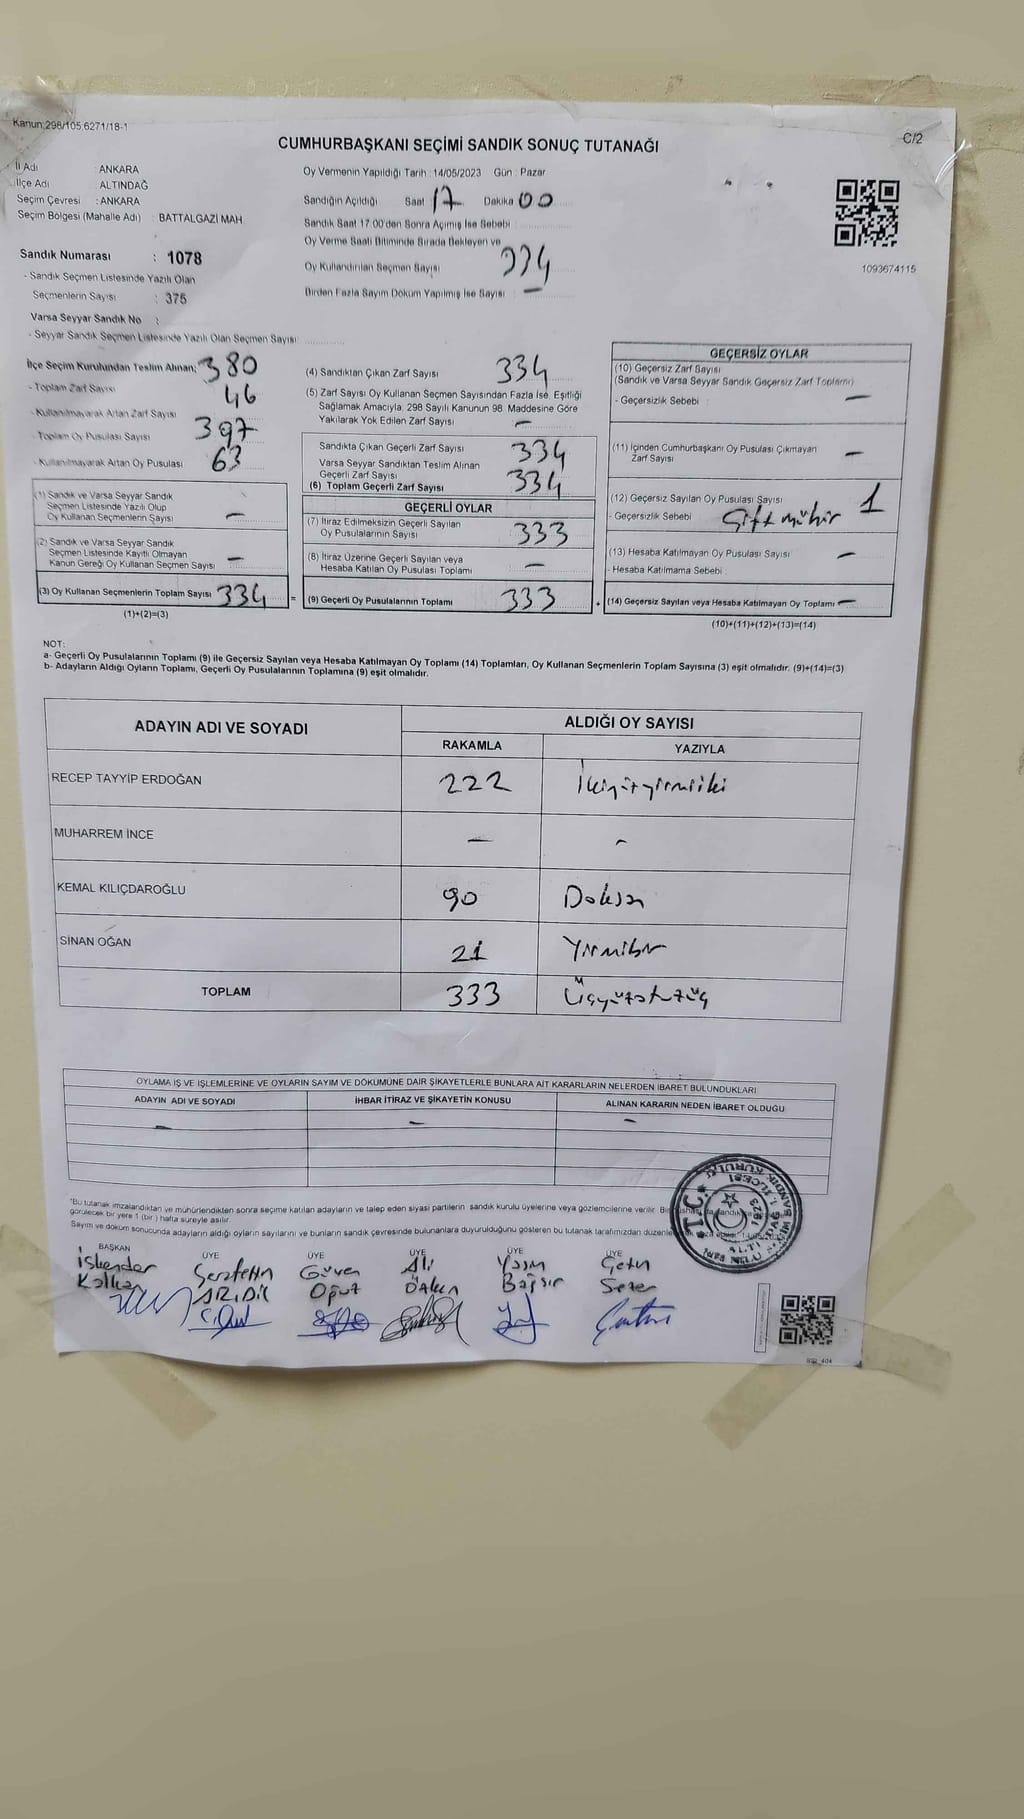 Kanun:298/105,6271/18-1
C/2
CUMHURBAŞKANI SEÇİMİ SANDIK SONUÇ TUTANAĞI
İl Adı : ANKARA
İlçe Adı : ALTINDAĞ
Seçim Çevresi : ANKARA
Seçim Bölgesi (Mahalle Adı) : BATTALGAZİ MAH.
Sandık Numarası : 1078
- Sandık Seçmen Listesinde Yazılı Olan
Seçmenlerin Sayısı : 375
Varsa Seyyar Sandık No :
- Seyyar Sandık Seçmen Listesinde Yazılı Olan Seçmen Sayısı
Oy Vermenin Yapıldığı Tarih : 14/05/2023 Gün : Pazar
Sandığın Açıldığı Saat 17 Dakika 00
Sandık Saat 17.00'den Sonra Açımış İse Sebebi :
Oy Verme Saati Bitiminde Sırada Bekleyen ve
Oy Kullandırılan Seçmen Sayısı 334
Birden Fazla Sayım Döküm Yapılmış İse Sayısı : –
1093674115
İlçe Seçim Kurulundan Teslim Alınan;
- Toplam Zarf Sayısı 380
- Kullanılmayarak Artan Zarf Sayısı 46
- Toplam Oy Pusulası Sayısı 397
- Kullanılmayarak Artan Oy Pusulası 63
(1) Sandık ve Varsa Seyyar Sandık
Seçmen Listesinde Yazılı Olup
Oy Kullanan Seçmenlerin Sayısı –
(2) Sandık ve Varsa Seyyar Sandık
Seçmen Listesinde Kayıtlı Olmayan
Kanun Gereği Oy Kullanan Seçmen Sayısı –
(3) Oy Kullanan Seçmenlerin Toplam Sayısı 334 =
(1)+(2)=(3)
(4) Sandıktan Çıkan Zarf Sayısı 334
(5) Zarf Sayısı Oy Kullanan Seçmen Sayısından Fazla İse, Eşitliği
Sağlamak Amacıyla, 298 Sayılı Kanunun 98. Maddesine Göre
Yakılarak Yok Edilen Zarf Sayısı –
Sandıkta Çıkan Geçerli Zarf Sayısı 334
Varsa Seyyar Sandıktan Teslim Alınan
Geçerli Zarf Sayısı
(6) Toplam Geçerli Zarf Sayısı 334
GEÇERLİ OYLAR
(7) İtiraz Edilmeksizin Geçerli Sayılan
Oy Pusulalarının Sayısı 333
(8) İtiraz Üzerine Geçerli Sayılan veya
Hesaba Katılan Oy Pusulası Toplamı –
(9) Geçerli Oy Pusulalarının Toplamı 333 +
GEÇERSİZ OYLAR
(10) Geçersiz Zarf Sayısı
(Sandık ve Varsa Seyyar Sandık Geçersiz Zarf Toplamı)
- Geçersizlik Sebebi : –
(11) İçinden Cumhurbaşkanı Oy Pusulası Çıkmayan
Zarf Sayısı –
(12) Geçersiz Sayılan Oy Pusulası Sayısı 1
- Geçersizlik Sebebi Çift mühür
(13) Hesaba Katılmayan Oy Pusulası Sayısı –
- Hesaba Katılmama Sebebi :
(14) Geçersiz Sayılan veya Hesaba Katılmayan Oy Toplamı –
(10)+(11)+(12)+(13)=(14)
NOT:
a- Geçerli Oy Pusulalarının Toplamı (9) ile Geçersiz Sayılan veya Hesaba Katılmayan Oy Toplamı (14) Toplamları, Oy Kullanan Seçmenlerin Toplam Sayısına (3) eşit olmalıdır. (9)+(14)=(3)
b- Adayların Aldığı Oyların Toplamı, Geçerli Oy Pusulalarının Toplamına (9) eşit olmalıdır.
ADAYIN ADI VE SOYADI
ALDIĞI OY SAYISI
RAKAMLA YAZIYLA
RECEP TAYYİP ERDOĞAN 222 İkiyüzyirmiiki
MUHARREM İNCE – –
KEMAL KILIÇDAROĞLU 90 Doksan
SİNAN OĞAN 21 Yirmibir
TOPLAM 333 Üçyüzotuzüç
OYLAMA İŞ VE İŞLEMLERİNE VE OYLARIN SAYIM VE DÖKÜMÜNE DAİR ŞİKAYETLERLE BUNLARA AİT KARARLARIN NELERDEN İBARET BULUNDUKLARI
ADAYIN ADI VE SOYADI İHBAR İTİRAZ VE ŞİKAYETİN KONUSU ALINAN KARARIN NEDEN İBARET OLDUĞU
– – –
*Bu tutanak imzalandıktan ve mühürlendikten sonra seçime katılan adayların ve talep eden siyasi partilerin sandık kurulu üyelerine veya gözlemcilerine verilir.
görülecek bir yere 1 (bir) hafta süreyle asılır.
Sayım ve döküm sonucunda adayların aldığı oyların sayılarını ve bunların sandık çevresinde bulunanlara duyurulduğunu gösteren bu tutanak tarafımızdan
T.C.
1923
BAŞKAN ÜYE ÜYE ÜYE ÜYE ÜYE
İskender Şerafettin Güven Ali Yasin Çetin
Kalkan ARIDIL Oğut Özkan Bağsır Sezer